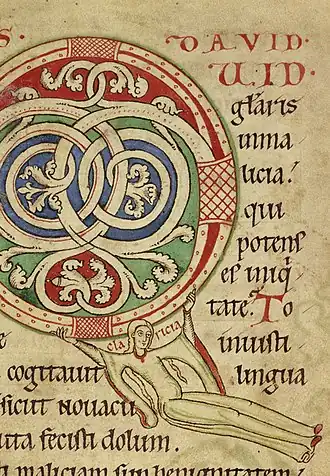 S · DAVID·
UID·
glaris
inma
licia?
qui
potens
es iniq̅
tate. To
cla ricia
e inuisti
cogitauit lingua
sicut nouacu
uta fecisti dolum.
maliciam sup benignitatem